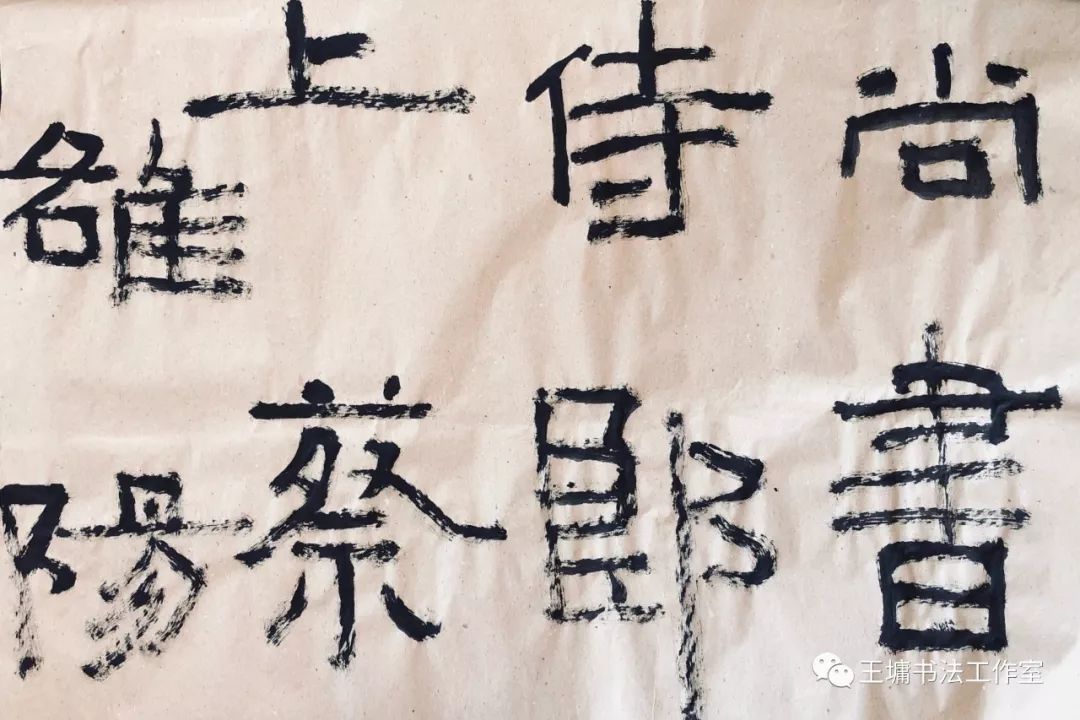 尚書
侍郎
上蔡
雒陽
王墉书法工作室